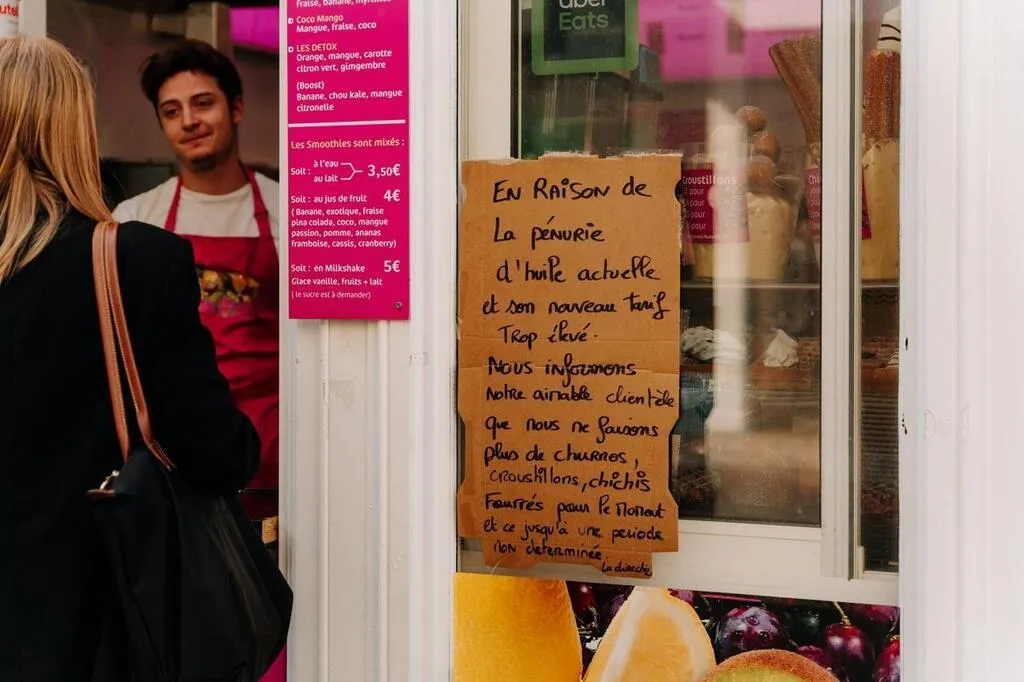 Fraise, banane, myrtilles
Coco Mango
Mangue, fraise, coco
LES DETOX
Orange, mangue, carotte
citron vert, gimgembre
(Boost)
Banane, chou kale, mangue
citronelle
Les Smoothies sont mixés :
Soit : à l'eau
au lait
3,50€
Soit : au jus de fruit 4€
( Banane, exotique, fraise
pina colada, coco, mangue
passion, pomme, ananas
framboise, cassis, cranberry)
Soit : en Milkshake 5€
Glace vanille, fruits + lait
( le sucre est à demander)
Uber
Eats
En Raison de
La pénurie
d'huile actuelle
et son nouveau tarif
Trop élevé.
Nous informons
Notre aimable clientèle
que nous ne faisons
plus de churros,
croustillons, chichis
Fourrés pour le Moment
et ce jusqu'à une periode
non determinée.
La direct°
Croustillons